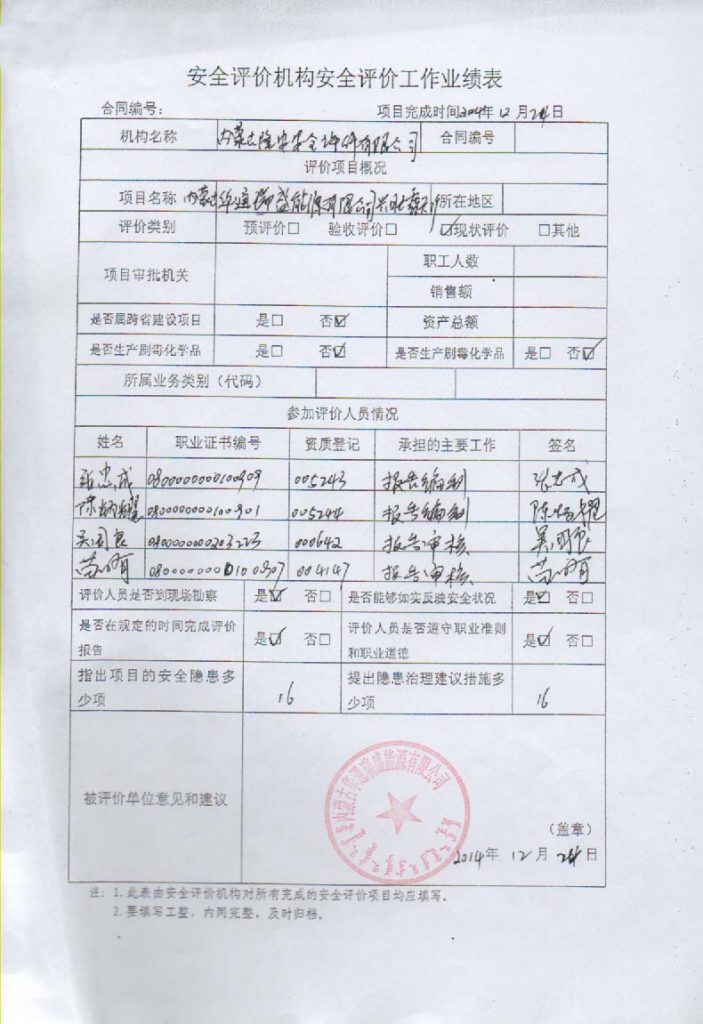 安全评价机构安全评价工作业绩表
合同编号： 项目完成时间2014年12月24日
机构名称 内蒙古 安全 有限公司 合同编号
评价项目概况
项目名称 内蒙古华通瑞盛能源有限公司 所在地区
评价类别 预评价□ 验收评价□ ☑现状评价 □其他
项目审批机关 职工人数
销售额
是否属跨省建设项目 是□ 否☑ 资产总额
是否生产剧毒化学品 是□ 否☑ 是否生产剧毒化学品 是□ 否☑
所属业务类别（代码）
参加评价人员情况
姓名 职业证书编号 资质登记 承担的主要工作 签名
张忠成 0800000000100909 005243 报告编制 张忠成
陈 0800000000100901 005244 报告编制 陈
吴国良 000642 报告审核 吴国良
苗 004147 报告审核 苗
评价人员是否到现场勘察 是☑ 否□ 是否能够如实反映安全状况 是☑ 否□
是否在规定的时间完成评价报告 是☑ 否□ 评价人员是否遵守职业准则和职业道德 是☑ 否□
指出项目的安全隐患多少项 16 提出隐患治理建议措施多少项 16
被评价单位意见和建议
内蒙古华通瑞盛能源有限公司
（盖章）
2014年 12月 24日
注：1.此表由安全评价机构对所有完成的安全评价项目均应填写。
2.要填写工整，内同完整，及时归档。